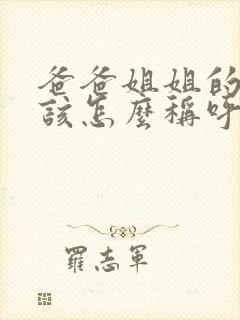 爸爸姐姐的
該怎麼稱呼
羅志軍